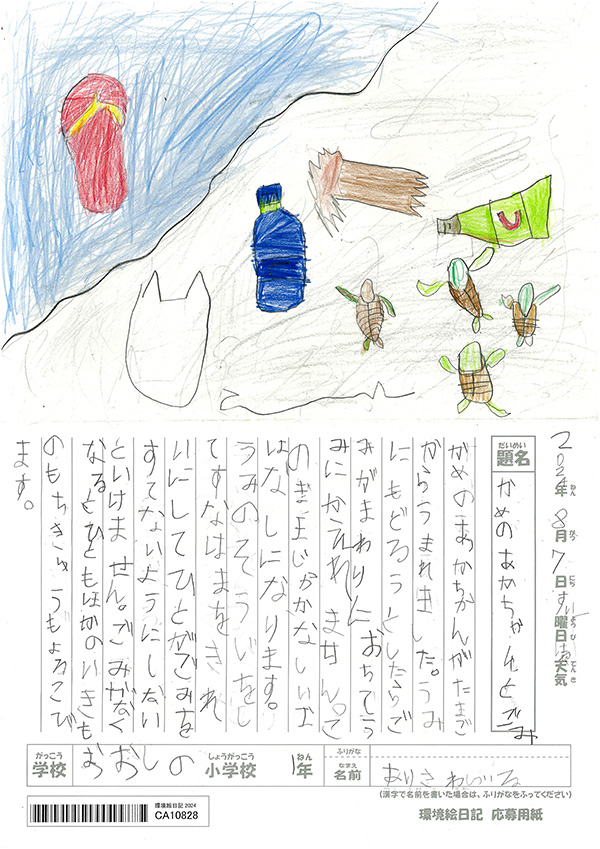 2024年ねん 8月がつ 7日にち すい曜日ようび はれ天気てんき
だいめい
題名 かめのあかちゃんとごみ
かめのあかちゃんがたまご
からうまれました。うみ
にもどろうとしたらご
みがまわりにおちてう
みにかえれません。こ
のままじゃかなしいお
はなしになります。
うみのそうじをし
てすなはまをきれ
いにしてひとがごみを
すてないようにしない
といけません。ごみがなく
なるとひともほかのいきも
のもちきゅうもよろこび
ます。
がっこう しょうがっこう ねん ふりがな
学校 おおしの 小学校 1年 なまえ 名前
(漢字で名前を書いた場合は、ふりがなをふってください)
環境絵日記 2024
CA10828
環境絵日記 応募用紙